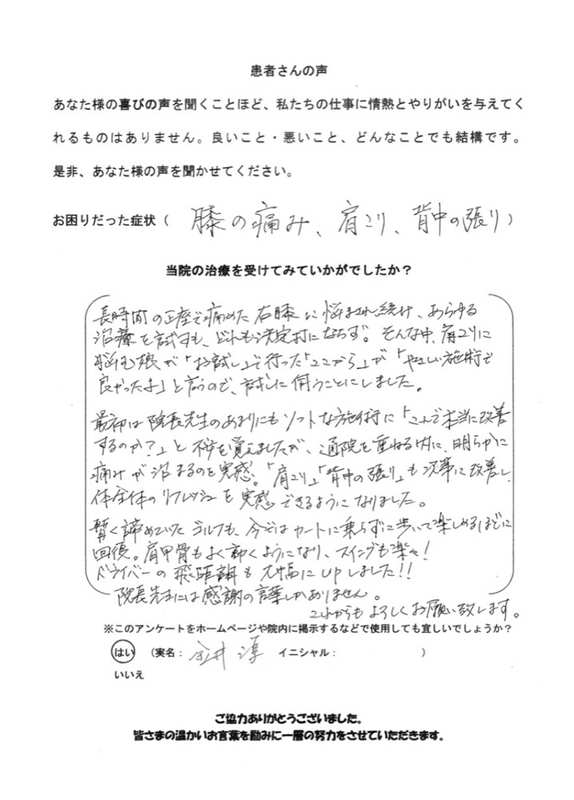 患者さんの声
あなた様の喜びの声を聞くことほど、私たちの仕事に情熱とやりがいを与えてく
れるものはありません。良いこと・悪いこと、どんなことでも結構です。
是非、あなた様の声を聞かせてください。
お困りだった症状（ 膝の痛み、肩こり、背中の張り）
当院の治療を受けてみていかがでしたか？
長時間の正座で痛めた右膝に悩まされ続け、あらゆる
治療を試すも、どれも決定打にならず。そんな中、肩こりに
悩む娘が「お試し」で行った「ここから」が「やさしい施術で
良かったよ」と言うので、試しに伺うことにしました。
最初は院長先生のあまりにもソフトな施術に「これで本当に改善
するのか？」と不安を覚えましたが、通院を重ねる内に、明らかに
痛みが治まるのを実感。「肩こり」「背中の張り」も次第に改善し、
体全体のリフレッシュを実感できるようになりました。
暫く諦めていたゴルフも、今ではカートに乗らずに歩いて楽しめるほどに
回復。肩甲骨もよく動くようになり、スイングも楽々！
ドライバーの飛距離も大幅にUPしました！！
院長先生には感謝の言葉しかありません。
これからもよろしくお願い致します。
※このアンケートをホームページや院内に掲示するなどで使用しても宜しいでしょうか？
はい （実名： 金井 淳 イニシャル： ）
いいえ
ご協力ありがとうございました。
皆さまの温かいお言葉を励みに一層の努力をさせていただきます。